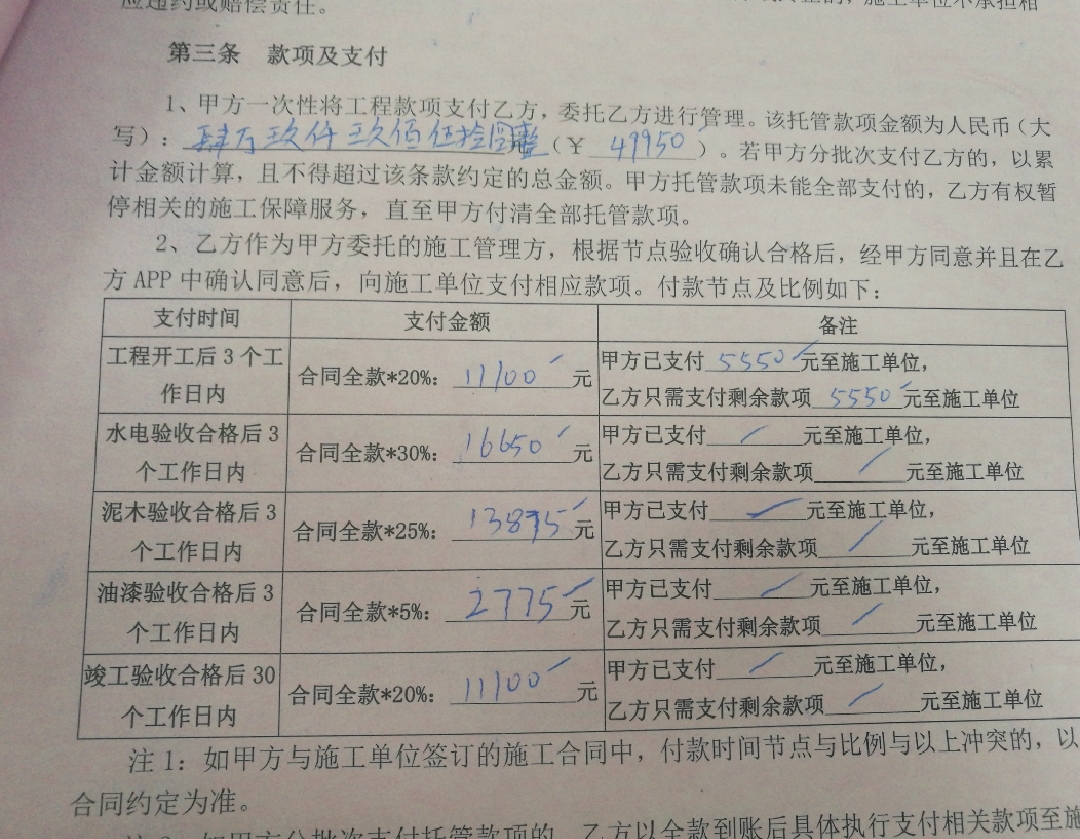 应违约或赔偿责任。
施工单位不承担相
第三条 款项及支付
1、甲方一次性将工程款项支付乙方,委托乙方进行管理。该托管款项金额为人民币(大
写):肆万玖仟玖佰伍拾圆整(¥ 49950 )。若甲方分批次支付乙方的,以累
计金额计算,且不得超过该条款约定的总金额。甲方托管款项未能全部支付的,乙方有权暂
停相关的施工保障服务,直至甲方付清全部托管款项。
2、乙方作为甲方委托的施工管理方,根据节点验收确认合格后,经甲方同意并且在乙
方 APP 中确认同意后,向施工单位支付相应款项。付款节点及比例如下:
支付时间 支付金额 备注
工程开工后 3 个工
作日内
合同全款*20%: 11100 元
甲方已支付 5550 元至施工单位,
乙方只需支付剩余款项 5550 元至施工单位
水电验收合格后 3
个工作日内
合同全款*30%: 16650 元
甲方已支付 / 元至施工单位,
乙方只需支付剩余款项 / 元至施工单位
泥木验收合格后 3
个工作日内
合同全款*25%: 13875 元
甲方已支付 / 元至施工单位,
乙方只需支付剩余款项 / 元至施工单位
油漆验收合格后 3
个工作日内
合同全款*5%: 2775 元
甲方已支付 / 元至施工单位,
乙方只需支付剩余款项 / 元至施工单位
竣工验收合格后 30
个工作日内
合同全款*20%: 11100 元
甲方已支付 / 元至施工单位,
乙方只需支付剩余款项 / 元至施工单位
注 1:如甲方与施工单位签订的施工合同中,付款时间节点与比例与以上冲突的,以
合同约定为准。
如甲方分批次支付托管款项的,乙方以全款到账后具体执行支付相关款项至施